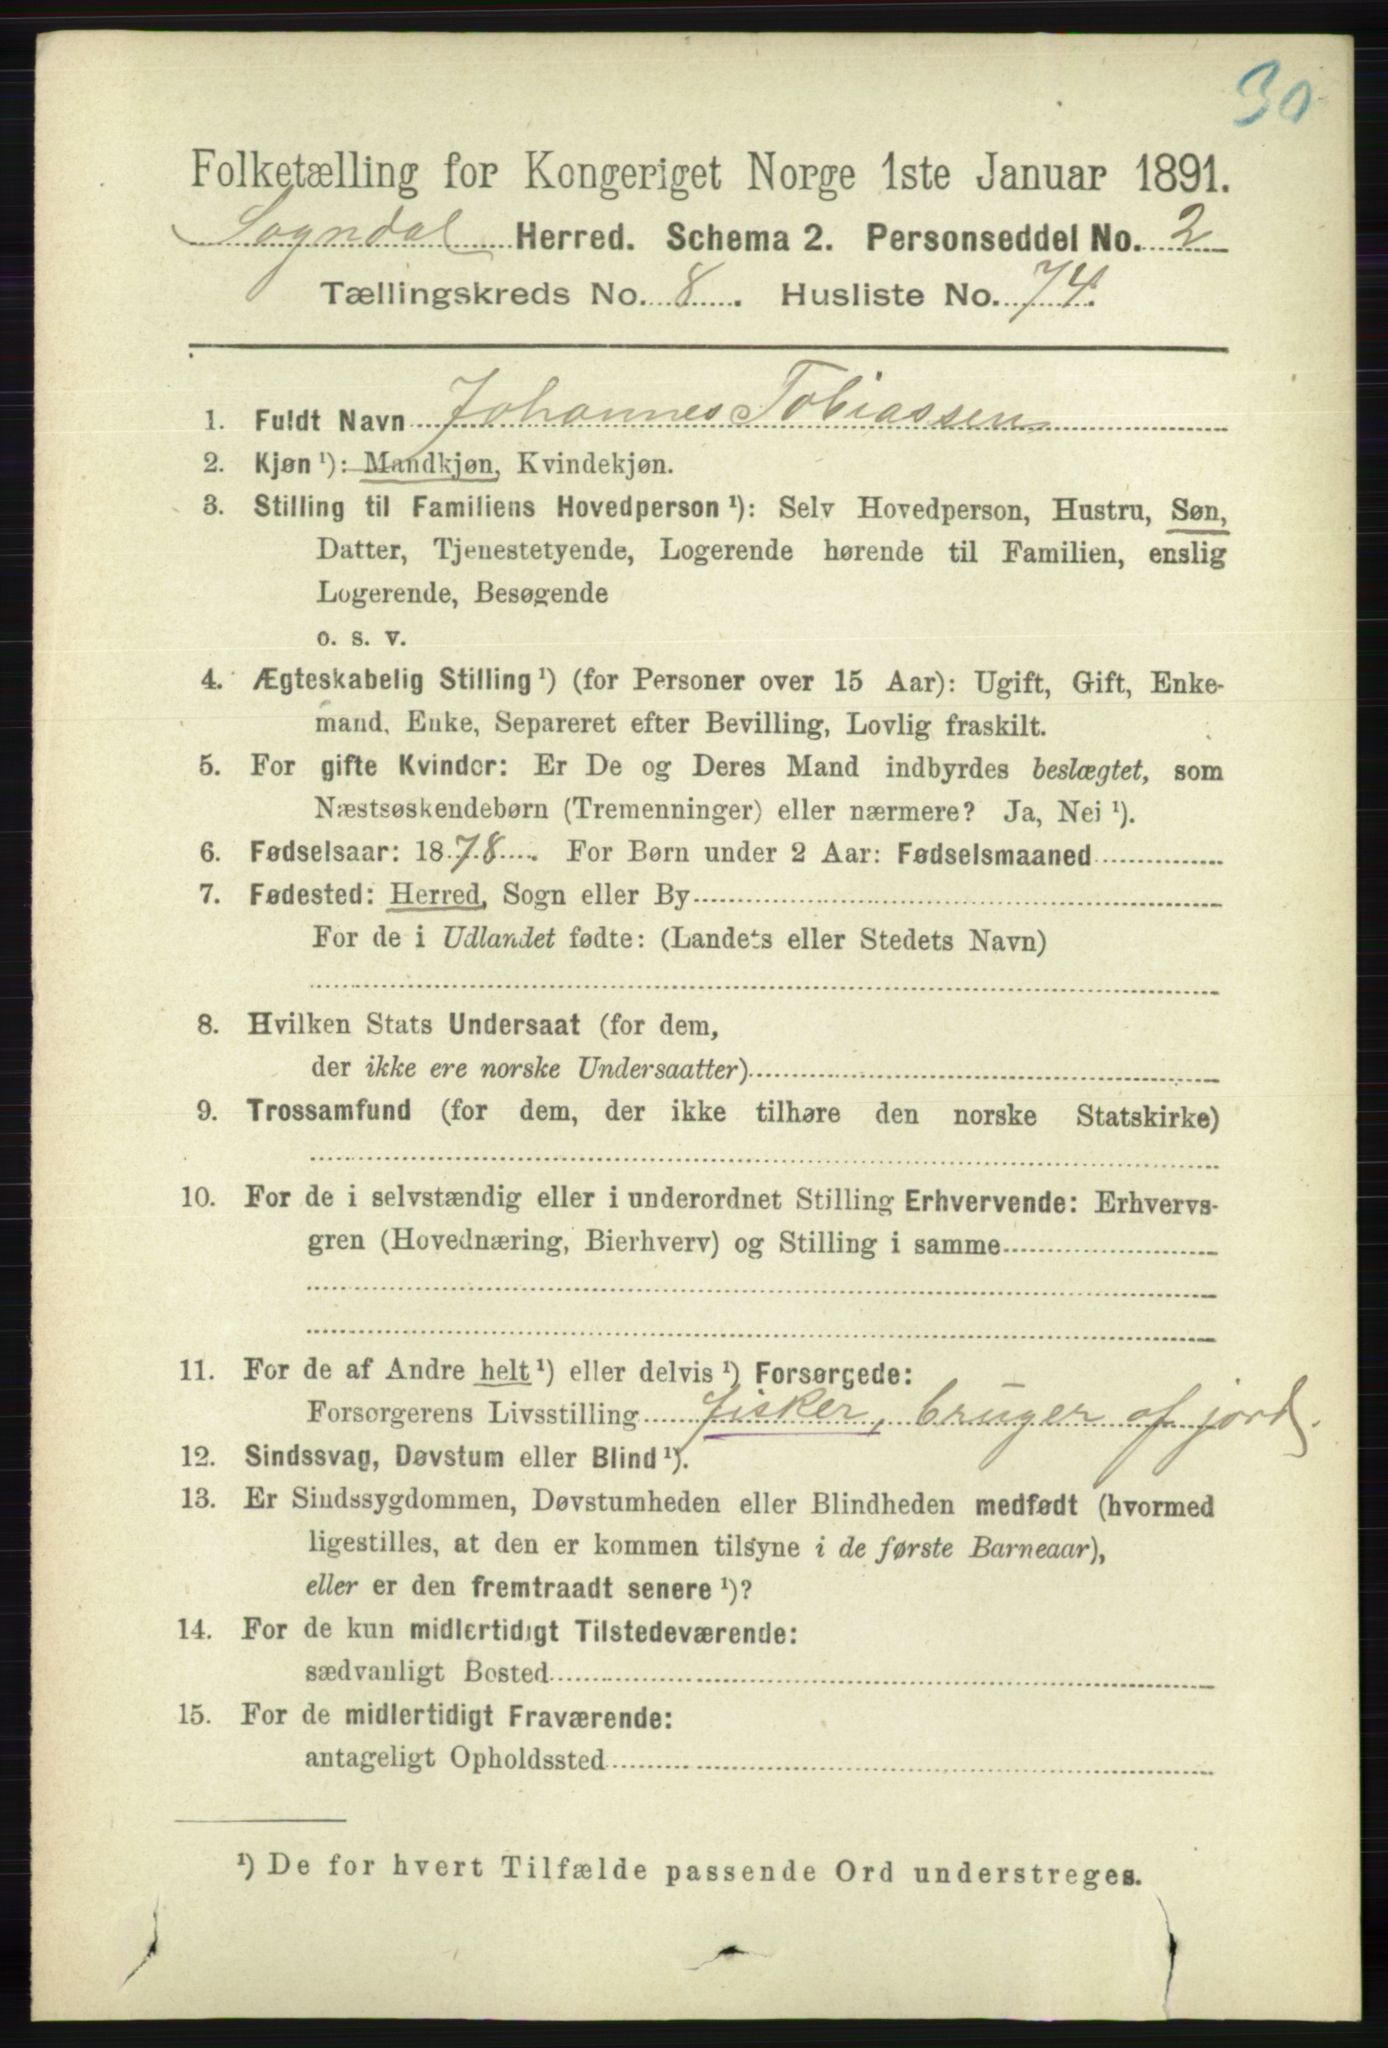 30
Folketælling for Kongeriget Norge 1ste Januar 1891.
Sogndal Herred. Schema 2. Personseddel No. 2
Tællingskreds No. 8. Husliste No. 74.
1. Fuldt Navn Johannes Tobiassen
2. Kjøn ¹): Mandkjøn, Kvindekjøn.
3. Stilling til Familiens Hovedperson ¹): Selv Hovedperson, Hustru, Søn,
Datter, Tjenestetyende, Logerende hørende til Familien, enslig
Logerende, Besøgende
o. s. v.
4. Ægteskabelig Stilling ¹) (for Personer over 15 Aar): Ugift, Gift, Enke-
mand, Enke, Separeret efter Bevilling, Lovlig fraskilt.
5. For gifte Kvinder: Er De og Deres Mand indbyrdes beslægtet, som
Næstsøskendebørn (Tremenninger) eller nærmere? Ja, Nei ¹).
6. Fødselsaar: 1878. For Børn under 2 Aar: Fødselsmaaned
7. Fødested: Herred, Sogn eller By
For de i Udlandet fødte: (Landets eller Stedets Navn)
8. Hvilken Stats Undersaat (for dem,
der ikke ere norske Undersaatter)
9. Trossamfund (for dem, der ikke tilhøre den norske Statskirke)
10. For de i selvstændig eller i underordnet Stilling Erhvervende: Erhvervs-
gren (Hovednæring, Bierhverv) og Stilling i samme
11. For de af Andre helt ¹) eller delvis ¹) Forsørgede:
Forsørgerens Livsstilling fisker, bruger af jord.
12. Sindssvag, Døvstum eller Blind ¹).
13. Er Sindssygdommen, Døvstumheden eller Blindheden medfødt (hvormed
ligestilles, at den er kommen tilsyne i de første Barneaar),
eller er den fremtraadt senere ¹)?
14. For de kun midlertidigt Tilstedeværende:
sædvanligt Bosted
15. For de midlertidigt Fraværende:
antageligt Opholdssted
¹) De for hvert Tilfælde passende Ord understreges.